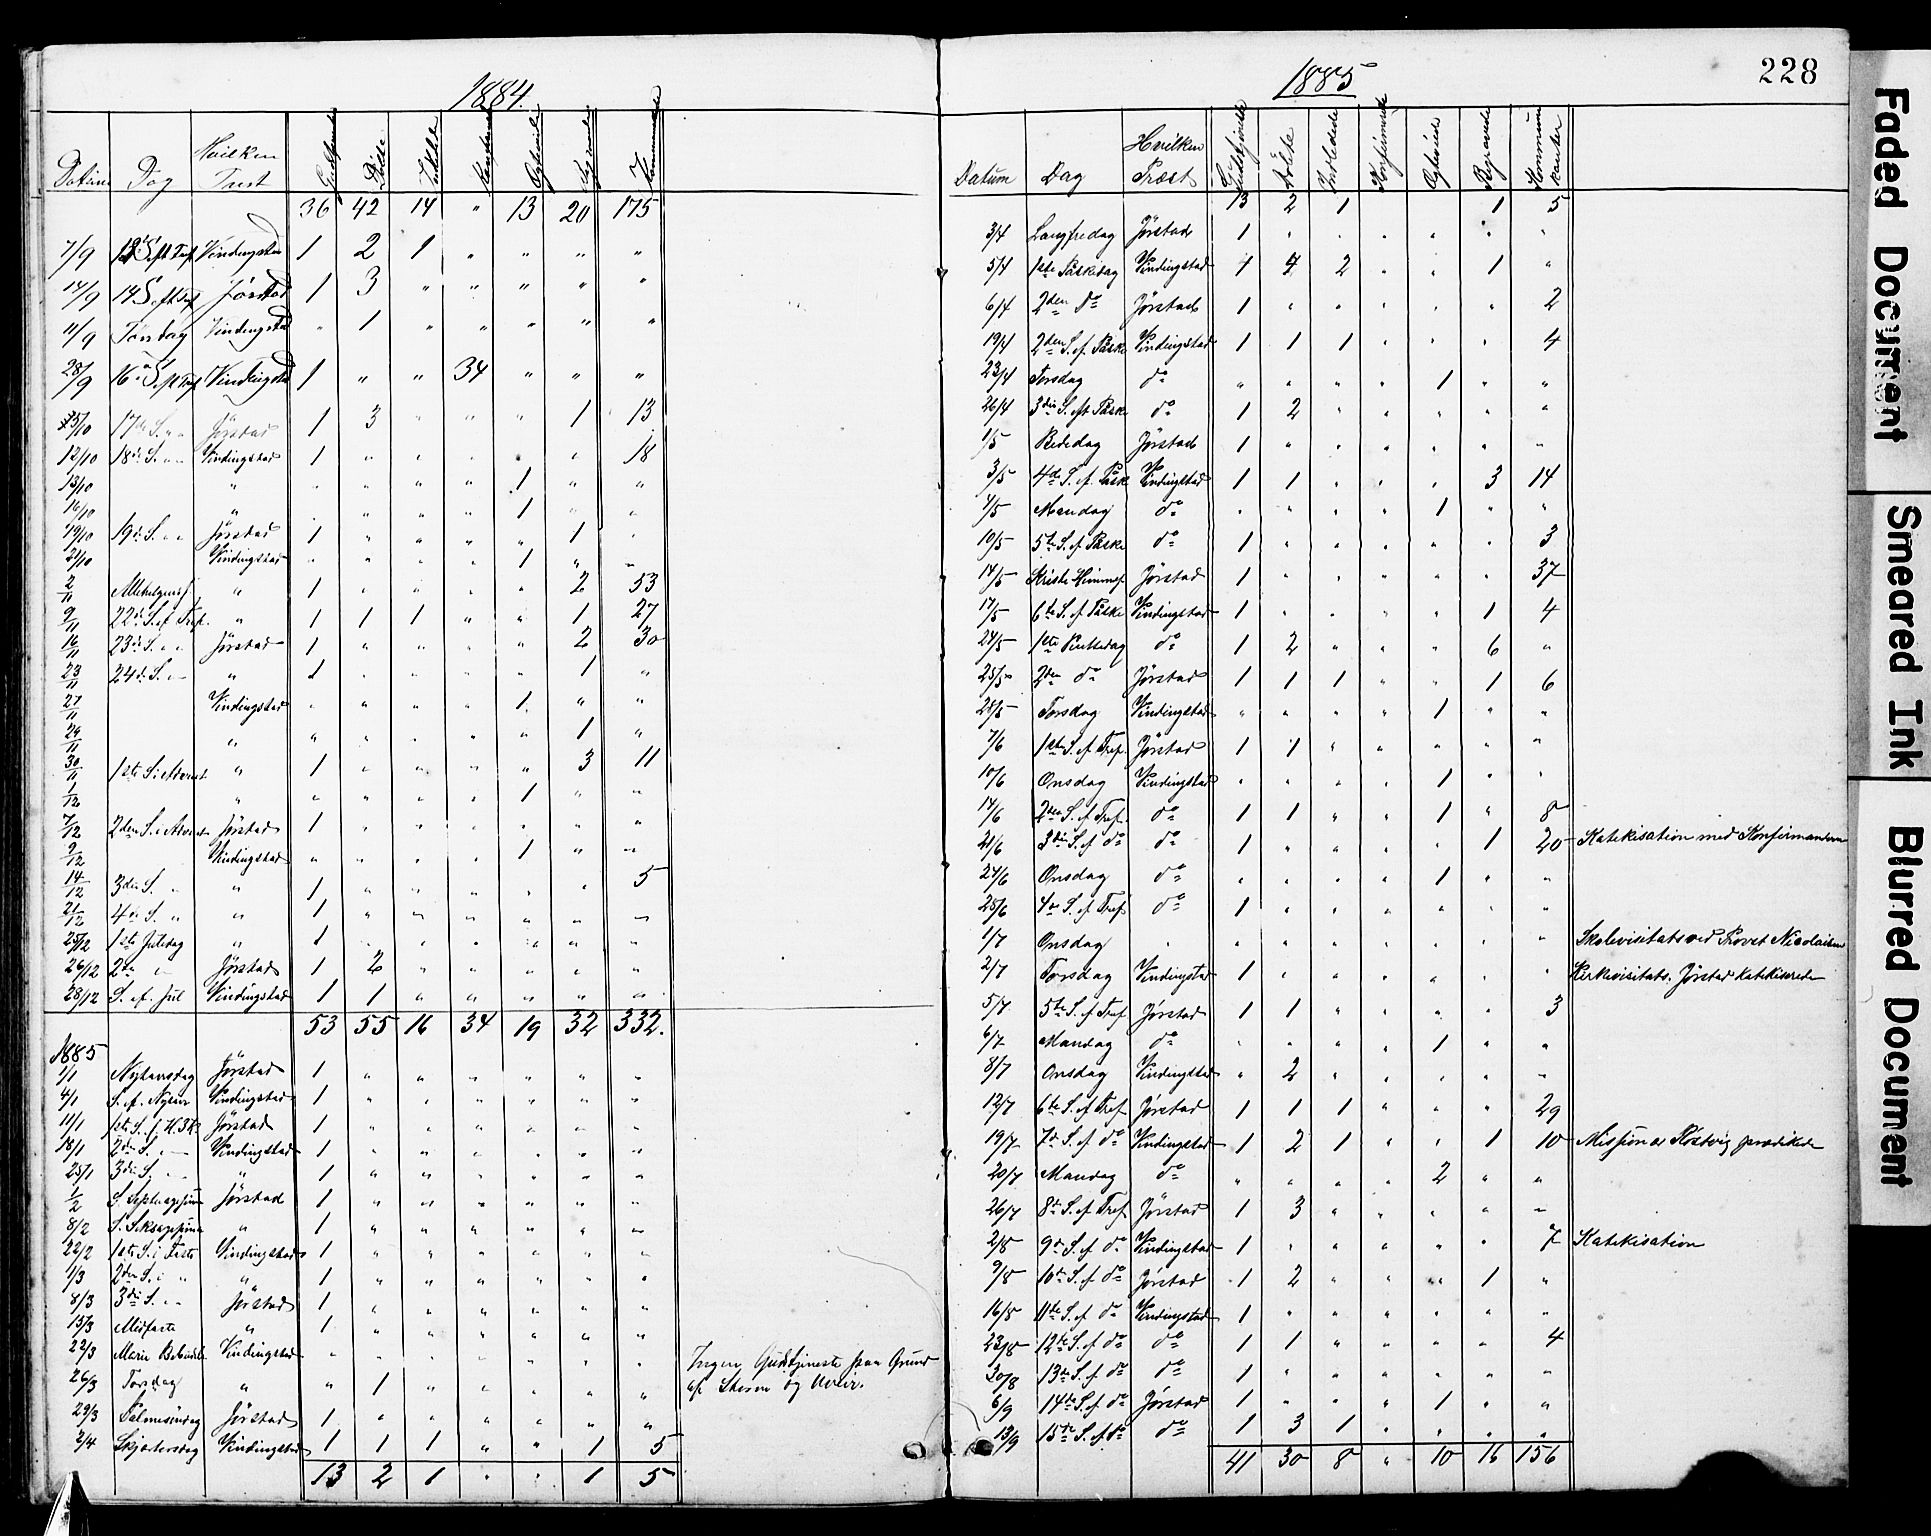 1884.
Datum Dag Hvilken Præst
36 42 14 " 13 20 175
7/9 13 S. eft Tref Vindingstad 1 2 1 " " " "
14/9 14 S. eft Tref Jørstad 1 3 " " " " "
11/9 Torsdag Vindingstad " 1 " " " " "
28/9 16 S. eft Tref Vindingstad 1 " " 34 " " "
5/10 17de S. " " Jørstad 1 3 " " " 1 13
12/10 18de S. " " Vindingstad 1 " " " " " 18
13/10 " " " " " 1 " "
16/10 " " " " " 1 " "
19/10 19de S. " " Jørstad 1 " " " " 1 "
21/10 Vindingstad " " " " 1 " "
2/11 " 1 " " " " 2 53
9/11 22de S. ef Tref. " 1 1 1 " " 1 27
16/11 23de S. " " Jørstad 1 " " " " 2 30
23/11 24de S. " " " 1 " " " " 1 "
27/11 Vindingstad " " " " 1 " "
29/11 " " " " " " 1 "
30/11 1ste S. i Advent " 1 " " " " 3 11
1/12 " " " " " 1 " "
7/12 2den S. i Advent Jørstad 1 " " " " " "
9/12 Vindingstad " " " " 1 " "
14/12 3die S. " " 1 " " " " " 5
21/12 4de S. " " 1 " " " " " "
25/12 1ste Juledag " 1 " " " " " "
26/12 2den " Jørstad 1 2 " " " " "
28/12 S. ef. Jul Vindingstad 1 1 " " " " "
53 55 16 34 19 32 332.
1885
1/1 Nytaarsdag Jørstad 1 " " " " " "
4/1 S. ef. Nytaar Vindingstad 1 " " " " " "
11/1 1ste S. f. H. 3 K. Jørstad 1 " " " " " "
18/1 2den S. " Vindingstad 1 " " " " " "
25/1 3die S. " " 1 " " " " " "
1/2 S. Septuagesima Jørstad 1 " " " " " "
8/2 S. Seksagesima " 1 " " " " " "
22/2 1ste S. i Faste Vindingstad 1 " " " " " "
1/3 2den S. i " " 1 " " " " " "
8/3 3die S. " " Jørstad 1 " " " " " "
15/3 Midfaste " 1 " " " " " "
22/3 Marie Bebudels. Vindingstad " " " " " " " Ingen Gudstjeneste paa Grund
26/3 Torsdag " " 1 " " " " " af Storm og Uveir.
29/3 Palmesøndag Jørstad 1 " " " " " "
2/4 Skjærtorsdag Vindingstad 1 1 1 " " 1 5
13 2 1 " " 1 5
1885
228
Datum Dag Hvilken Præst Gudstjeneste Døbte Indledede Konfirmerede Ægteviede Begravede Kommunikanter
13 2 1 1 5
3/4 Langfredag Jørstad 1 " " " " " "
5/4 1ste Paaskedag Vindingstad 1 4 2 " " 1 "
6/4 2den do Jørstad 1 " " " " " 2
19/4 2den S. ef. Paaske Vindingstad 1 1 1 " " " 4
23/4 Torsdag do " " " " 1 " "
26/4 3die S. eft Paaske do 1 2 " " " " "
1/5 Bededag Jørstad 1 " " " " " "
3/5 4de S. ef. Paaske Vindingstad 1 1 " " " 3 14
4/5 Mandag do " " " " 1 " "
10/5 5te S. ef Paaske do 1 " " " " " 3
14/5 Kristi Himmelf. Jørstad 1 " " " " " 37
17/5 6te S. ef Paaske Vindingstad 1 " " " " 1 4
24/5 1ste Pintsedag do 1 2 " " " 6 "
25/5 2den do Jørstad 1 1 1 " " 1 6
28/5 Torsdag Vindingstad " " " " 1 " "
7/6 1ste S. ef Tref. Jørstad 1 1 " " " " "
10/6 Onsdag Vindingstad " " " " 1 " "
14/6 2den S. ef Tref. do 1 1 " " 1 " 8
21/6 3die S. ef do do 1 " " " " 1 20 Katekisation med Konfirmanderne
24/6 Onsdag do " " " " 1 " "
28/6 4de S. ef Tref do 1 " " " " " "
1/7 Onsdag " " " " " " " " Skolevisitats ved Provst Nicolaisen
2/7 Torsdag Vindingstad 1 " " " " " " Kirkevisitats. Jørstad katekiserede
5/7 5te S. ef Tref Jørstad 1 1 " " " " 3
6/7 Mandag do " " " " 1 " "
8/7 Onsdag Vindingstad " 2 " " " " "
12/7 6te S. ef Tref Jørstad 1 1 1 " " " 29
19/7 7de S. ef do Vindingstad 1 2 1 " " 1 10 Missionær Røstvig prædikede
20/7 Mandag do " " " " 2 " "
26/7 8de S. ef Tref Jørstad 1 3 " " " " "
2/8 9de S. ef do Vindingstad 1 " " " " " 7 Katekisation
9/8 10de S. ef do Jørstad 1 2 " " " 1 "
16/8 11te S. ef do Vindingstad 1 " " " " " "
23/8 12te S. ef do do 1 1 " " " " 4
30/8 13de S. ef do do 1 " " " " " "
6/9 14de S. ef do Jørstad 1 " " " 1 " "
13/9 15de S. ef do do 1 3 1 " " " "
41 30 8 " 10 16 156
Faded Document
Smeared Ink
Blurred Document